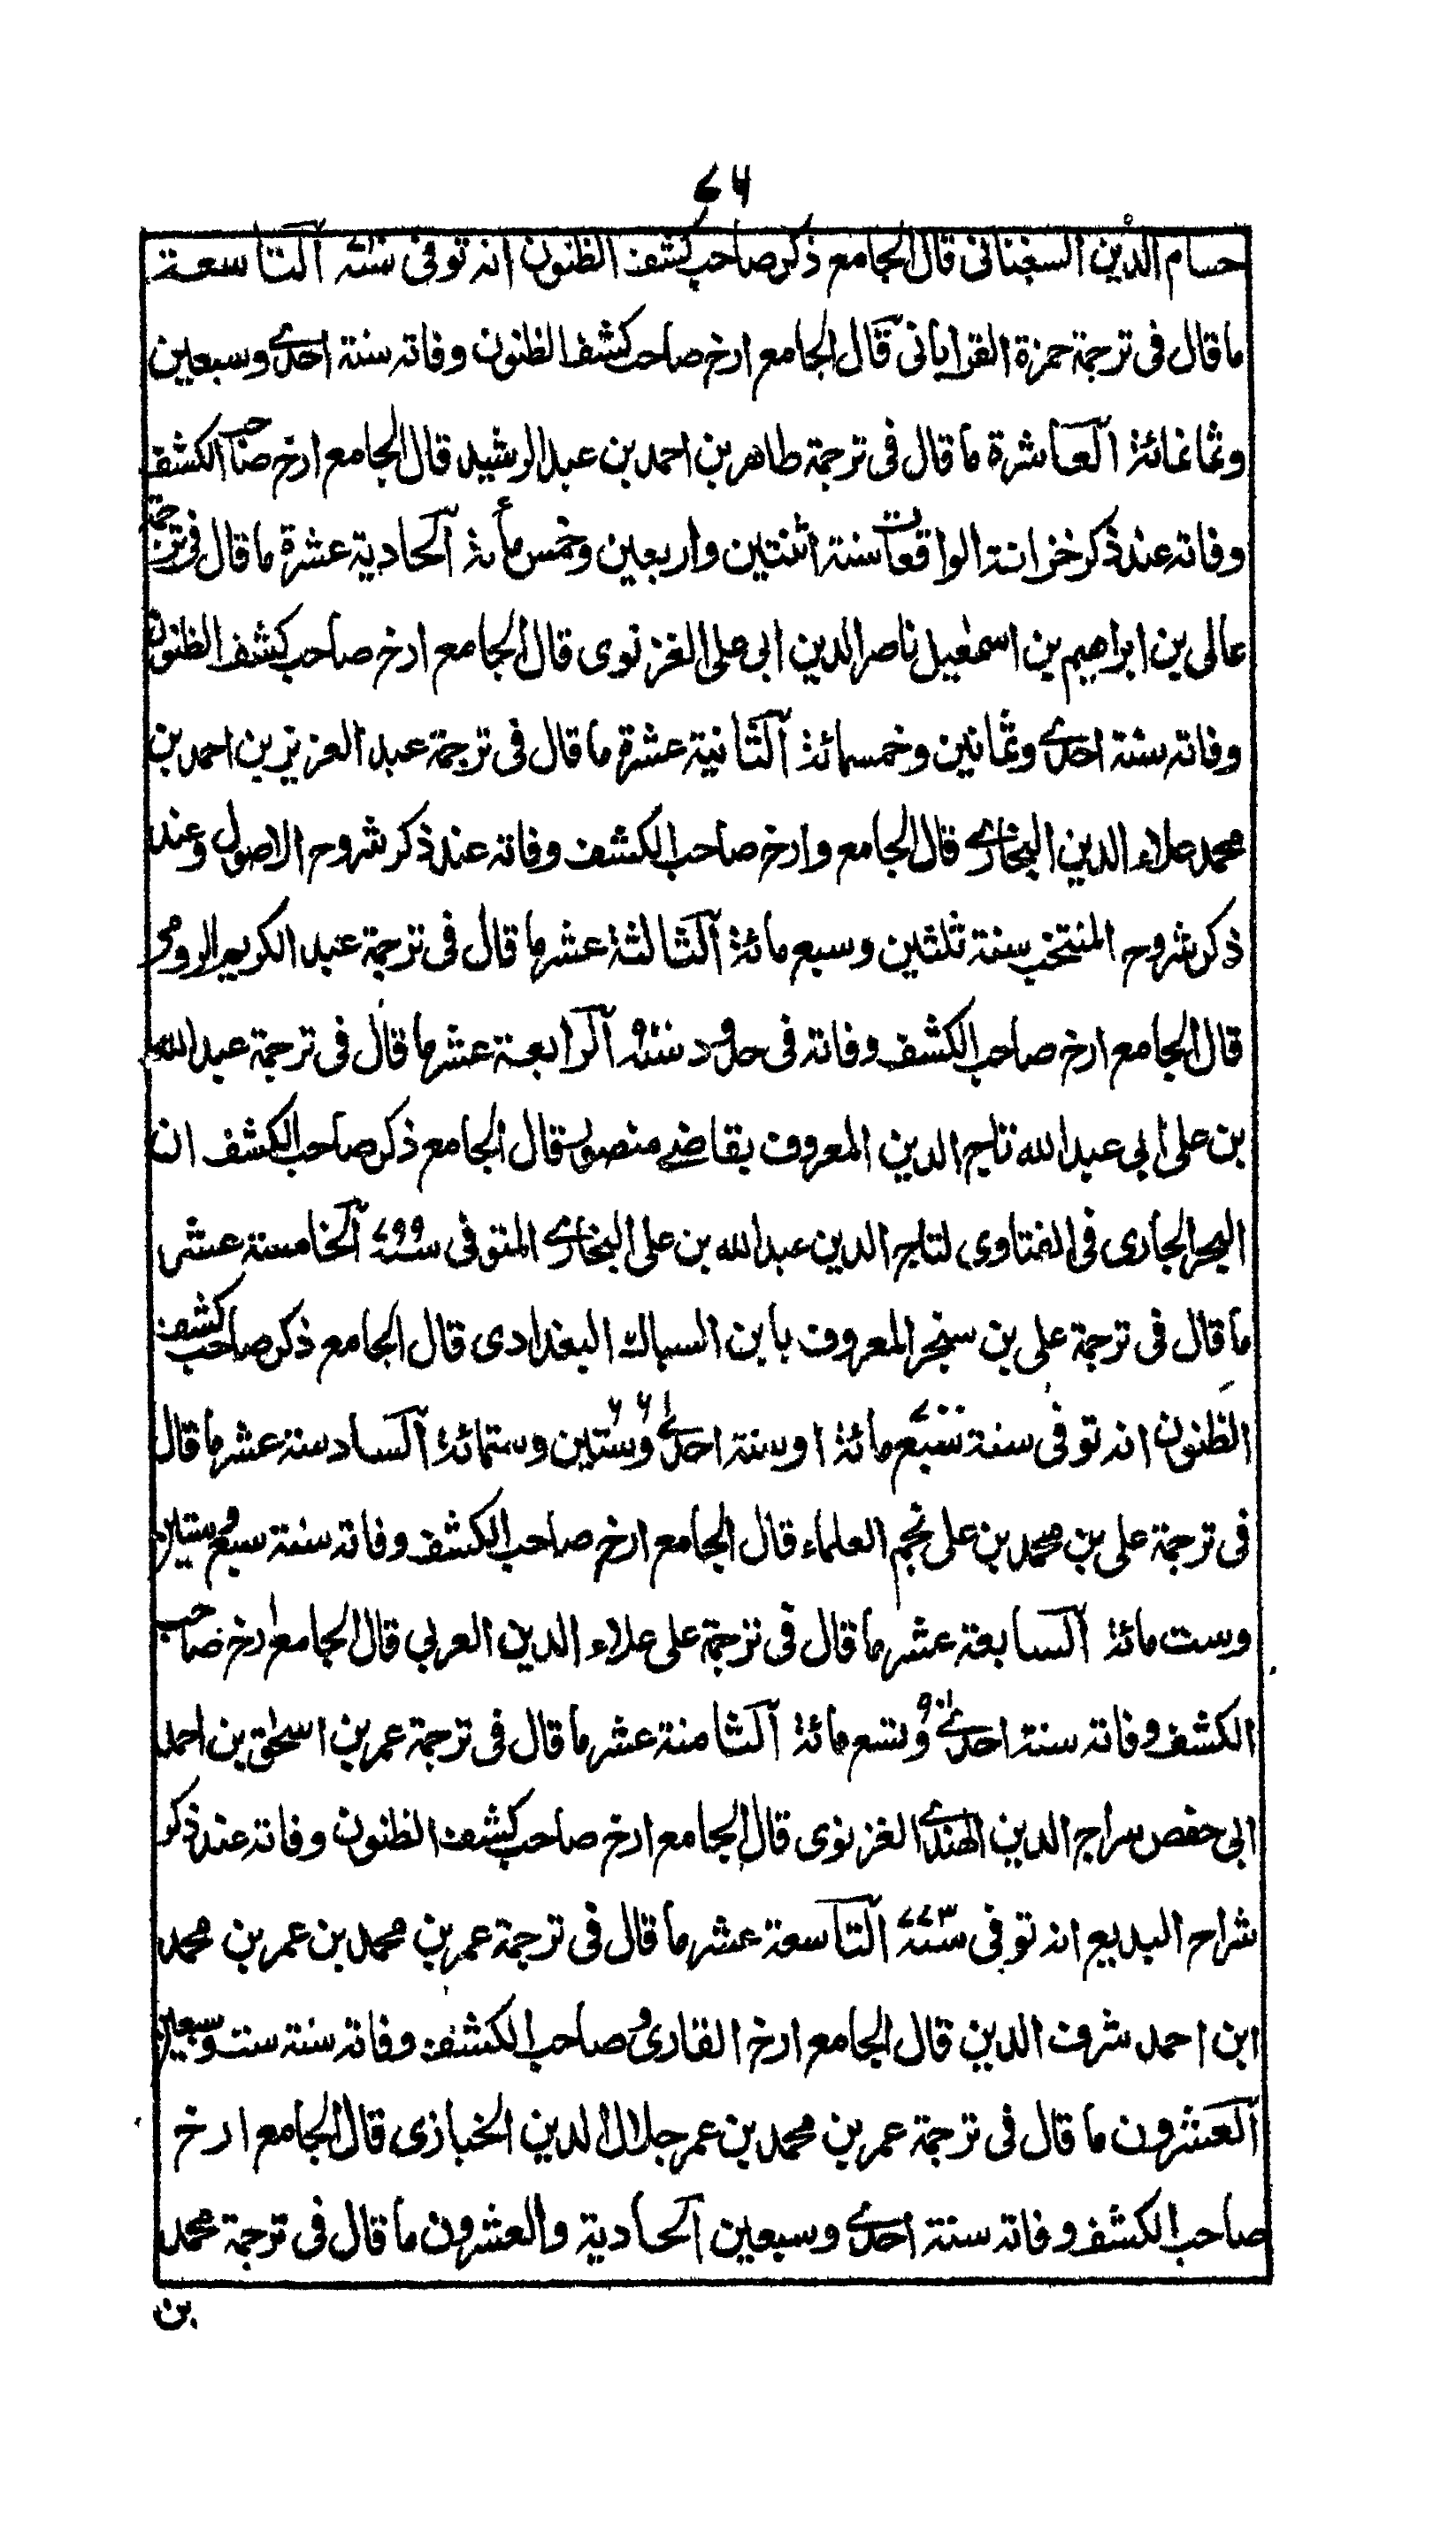 ٧٦
حسام الدين السغناقى قال الجامع ذكر صاحب كشف الظنون انه توفى سنة التاسعة
ما قال فى ترجمة حمزة القرامانى قال الجامع ارخ صاحب كشف الظنون وفاته سنة احدى وسبعين
وثمانمائة العاشرة ما قال فى ترجمة طاهر بن احمد بن عبد الرشيد قال الجامع ارخ صاحب الكشف
وفاته عند ذكر خزانة الواقعات سنة اثنتين واربعين وخمس مائة الحادية عشرة ما قال فى ترجمة
عالى بن ابراهيم بن اسمعيل ناصر الدين ابى على الغزنوى قال الجامع ارخ صاحب كشف الظنون
وفاته سنة احدى وثمانين وخمسمائة الثانية عشرة ما قال فى ترجمة عبد العزيز بن احمد بن
محمد علاء الدين البخارى قال الجامع وارخ صاحب الكشف وفاته عند ذكر شروح الاصول وعند
ذكر شروح المنتخب سنة ثلثين وسبع مائة الثالثة عشر ما قال فى ترجمة عبد الكريم الرومى
قال الجامع ارخ صاحب الكشف وفاته فى حدود سنة ٩٠٠ الرابعة عشر ما قال فى ترجمة عبد الله
بن على ابى عبد الله تاج الدين المعروف بقاضى منصور قال الجامع ذكر صاحب الكشف ان
البحر الجارى فى الفتاوى لتاج الدين عبد الله بن على البخارى المتوفى سنة ٧٩٩ الخامسة عشر
ما قال فى ترجمة على بن سنجر المعروف بابن السباك البغدادى قال الجامع ذكر صاحب كشف
الظنون انه توفى سنة سبع مائة ٧٠٠ او سنة احدى وستين وستمائة ٦٦١ السادسة عشر ما قال
فى ترجمة على بن محمد بن على نجم العلماء قال الجامع ارخ صاحب الكشف وفاته سنة سبع وستين
وست مائة السابعة عشر ما قال فى ترجمة على علاء الدين العربى قال الجامع ارخ صاحب
الكشف وفاته سنة احدى وتسع مائة ٩٠١ الثامنة عشر ما قال فى ترجمة عمر بن اسحق بن احمد
ابى حفص سراج الدين الهندى الغزنوى قال الجامع ارخ صاحب كشف الظنون وفاته عند ذكر
شراح البديع انه توفى سنة ٧٧٣ التاسعة عشر ما قال فى ترجمة عمر بن محمد بن عمر بن محمد
ابن احمد شرف الدين قال الجامع ارخ القارى وصاحب الكشف وفاته سنة ست وسبعين
العشرون ما قال فى ترجمة عمر بن محمد بن عمر جلال الدين الخبازى قال الجامع ارخ
صاحب الكشف وفاته سنة احدى وسبعين الحادية والعشرون ما قال فى ترجمة محمد
بن